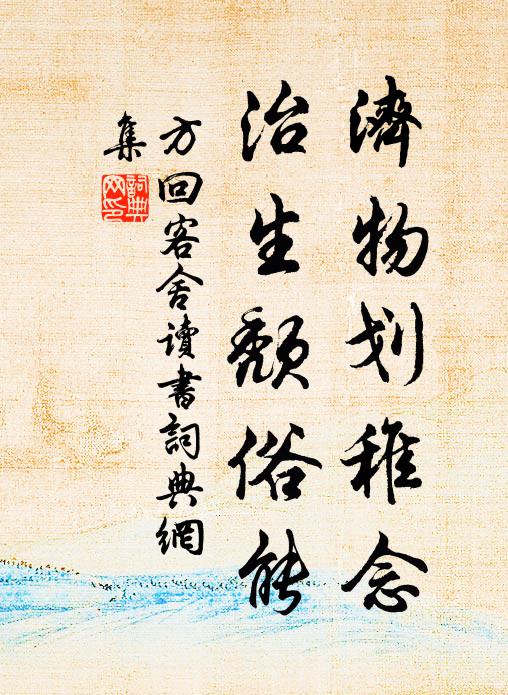 濟物划稚念
治生頹俗能
方回客舍讀書詞典網
集
詞典
网印